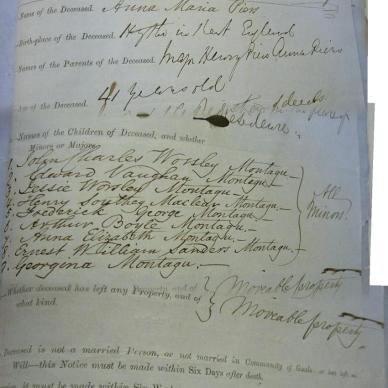 Name of the Deceased. Anna Maria Piers
Birth-place of the Deceased. Hythe in Kent England
Names of the Parents of the Deceased. Major Henry Piers Anna Piers
Age of the Deceased. 41 Years old
Names of the Children of Deceased, and whether
Minors or Majors.
1. John Charles Worsley Montagu
2. Edward Vaughan Montagu.
3. Jessie Worsley Montagu.
4. Henry Southey Maclear Montagu.
5. Frederick George Montagu.
6. Arthur Boyle Montagu.
7. Anna Elizabeth Montagu.
8. Ernest William Sanders Montagu.
9. Georgina Montagu.
All Minors.
Whether deceased has left any Property, and of
what kind.
Moveable property
Moveable property
Deceased is not a married Person, or not married in Community of Goods
Will—this Notice must be made within Six Days after death,
it must be made within Six